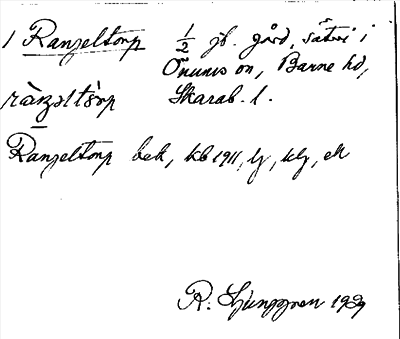 1 Ranzeltorp 1/2 jb. gård, säteri i
Önums sn, Barne hd,
Skarab. l.
Ranzeltorp bek, kb 1911,
R. Ljunggren 1929